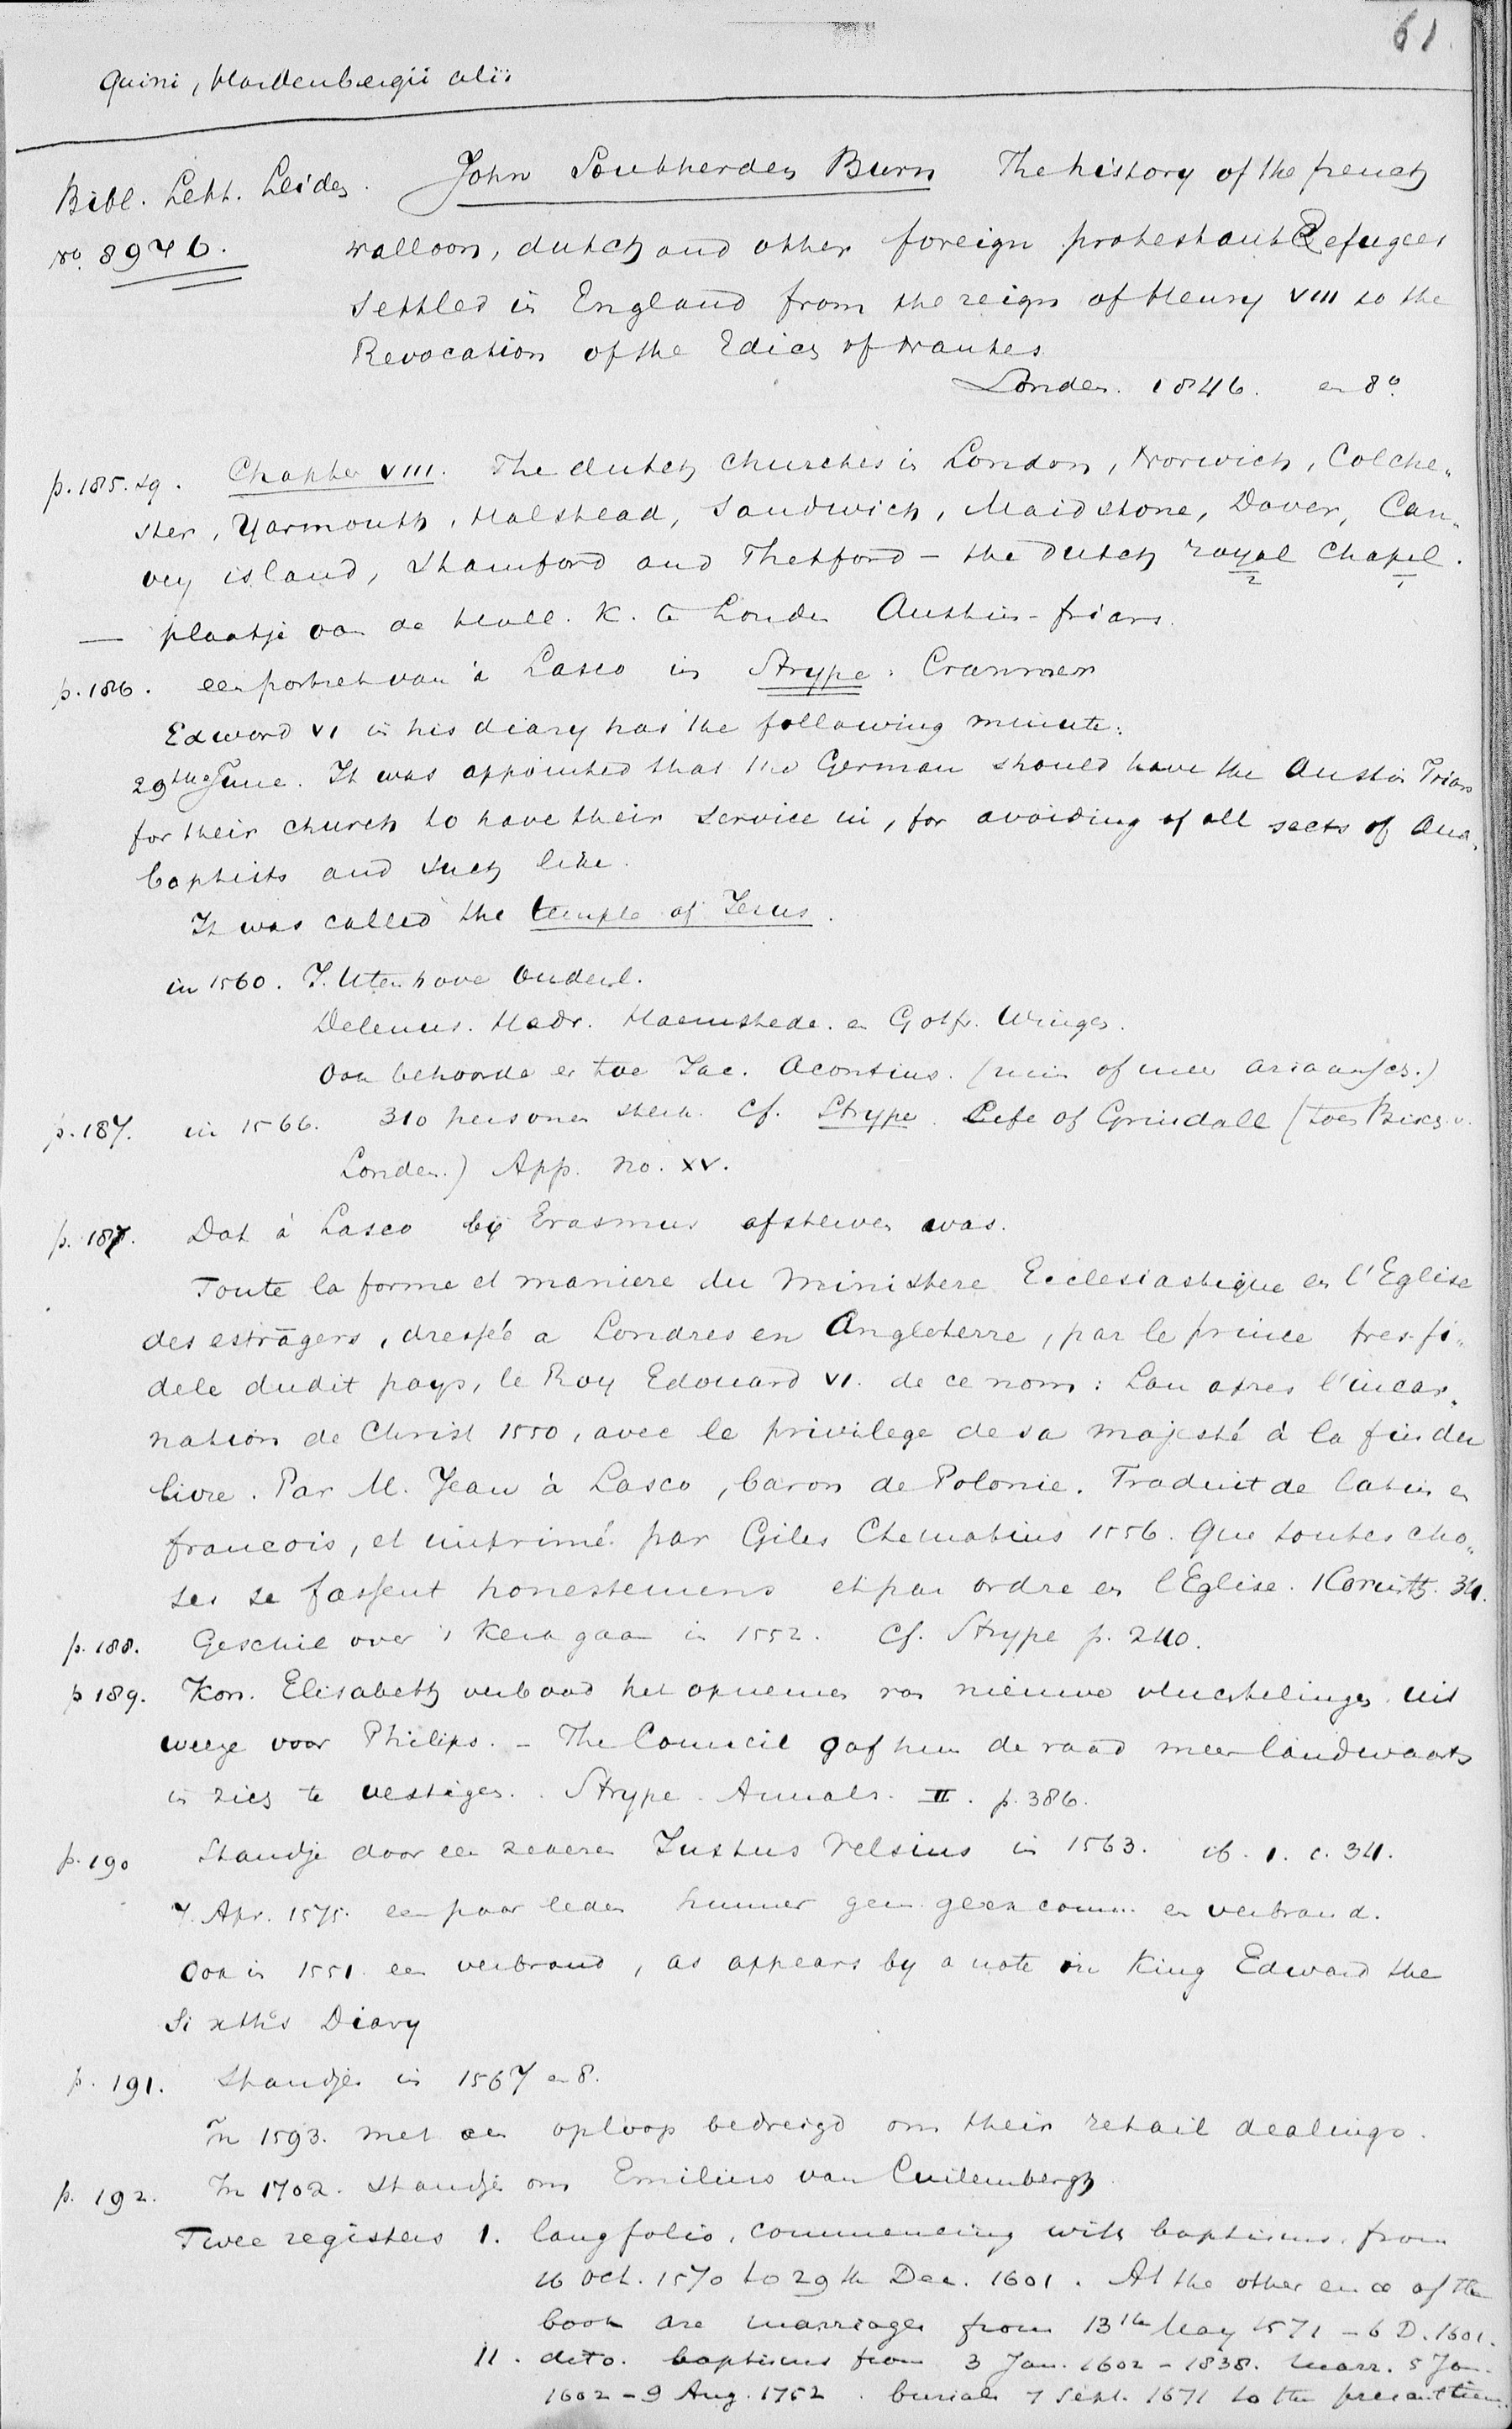 61.
quini, Hardenbergii alii
Bibl. Lett. Leiden.
No. 8976.
John Southerden Burn The history of the french
walloon, dutch and other foreign protestant Refugees
settled in England from the reign of Henry VIII to the
Revocation of the Edict of Nantes
Londen. 1846. en 8o.
p. 185. sq. Chapter VIII. The dutch churches in London, Norwich, Colche„
ster, Yarmouth, Halstead, Sandwich, Maidstone, Dover, Can„
vey island, Stamford and Thetford – the dutch royal chapel.
2 1
— plaatje van de Holl. K. te Londen Austin-friars.
p. 186. een portret van à Lasco in Strype: Cranmer
Edward VI in his diary has the following minute:
29th June. It was appointed that the German should have the Austin Friars
for their church to have their service in, for avoiding of all sects of Ana„
baptists and such like.
It was called the temple of Jesus.
in 1560. J. Utenhove Ouderl.
Delenus. Hadr. Haemstede. en Gotfr. Wingen.
Ook behoorde er toe Jac. Acontius. (min of meer ariaansch.)
p. 187. in 1566. 310 personen sterk. Cf. Strype. Life of Grindall (toen Bisch. v.
Londen.) App. no. XV.
p. 187. Dat à Lasco bij Erasmus' afsterven was.
Toute la forme et maniere du Ministere Ecclesiastique en l'Eglise
des estrāgers, dressée a Londres en Angleterre, par le prince tres fi„
dele dudit pays, le Roy Edouard VI. de ce nom: Lan apres l'incar„
nation de Christ 1550, avec le privilege de sa majesté à la fin du
livre. Par M. Jean à Lasco, baron de Polonie. Traduit de latin en
francois, et imprimé par Giles Ctematius 1556. Que toutes cho„
ses se fassent honestement et par ordre en l'Eglise. 1 Corinth. 34.
p. 188. Geschil over 't kerkgaan in 1552. Cf. Strype p. 240.
p 189. Kon. Elisabeth verbood het opnemen van nieuwe vluchtelingen uit
vreeze voor Philips. – The Council gaf hun de raad meer landwaarts
in zich te vestigen. Strype. Annals. II. p. 386.
p. 190 Standje door een zekeren Justus Velsius in 1563. ib. 1. c. 34.
7. Apr. 1575. een paar leden hunner gem. geexcomm. en verbrand.
Ook in 1551. een verbrand, as appears by a note in King Edward the
Sixth's Diary
p. 191. Standjes in 1567 en 8.
In 1593. met een oploop bedreigd om their retail dealings.
p. 192. In 1702. standje om Emilius van Cuilemborgh
Twee registers 1. lang folio, commencing with baptisms from
16 Oct. 1570 to 29th Dec. 1601. At the other end of the
book are marriages from 13th May 1571 – 6 D. 1601.
11. dito. baptisms from 3 Jan. 1602 – 1838. Marr. 5 Jan.
1602 – 9 Aug. 1752. burials 7 Sept. 1671 to the present time.